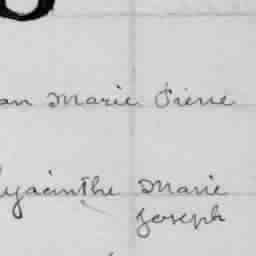 an Marie Pierre
Hyacinthe Marie
Joseph